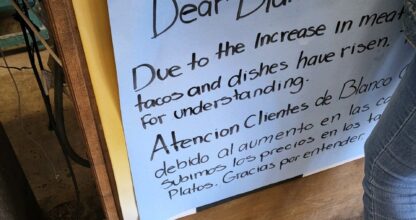 Dear
Due to the Increase in meat
tacos and dishes have risen.
For understanding.
Atencion Clientes de Blanco
debido al aumento en las
subimos los precios en los
Platos. Gracias por entender.